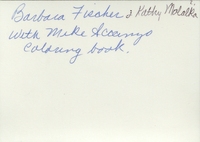 Barbara Fischer & Kathy Molatka
with Mike Accinyo
Coloring book.